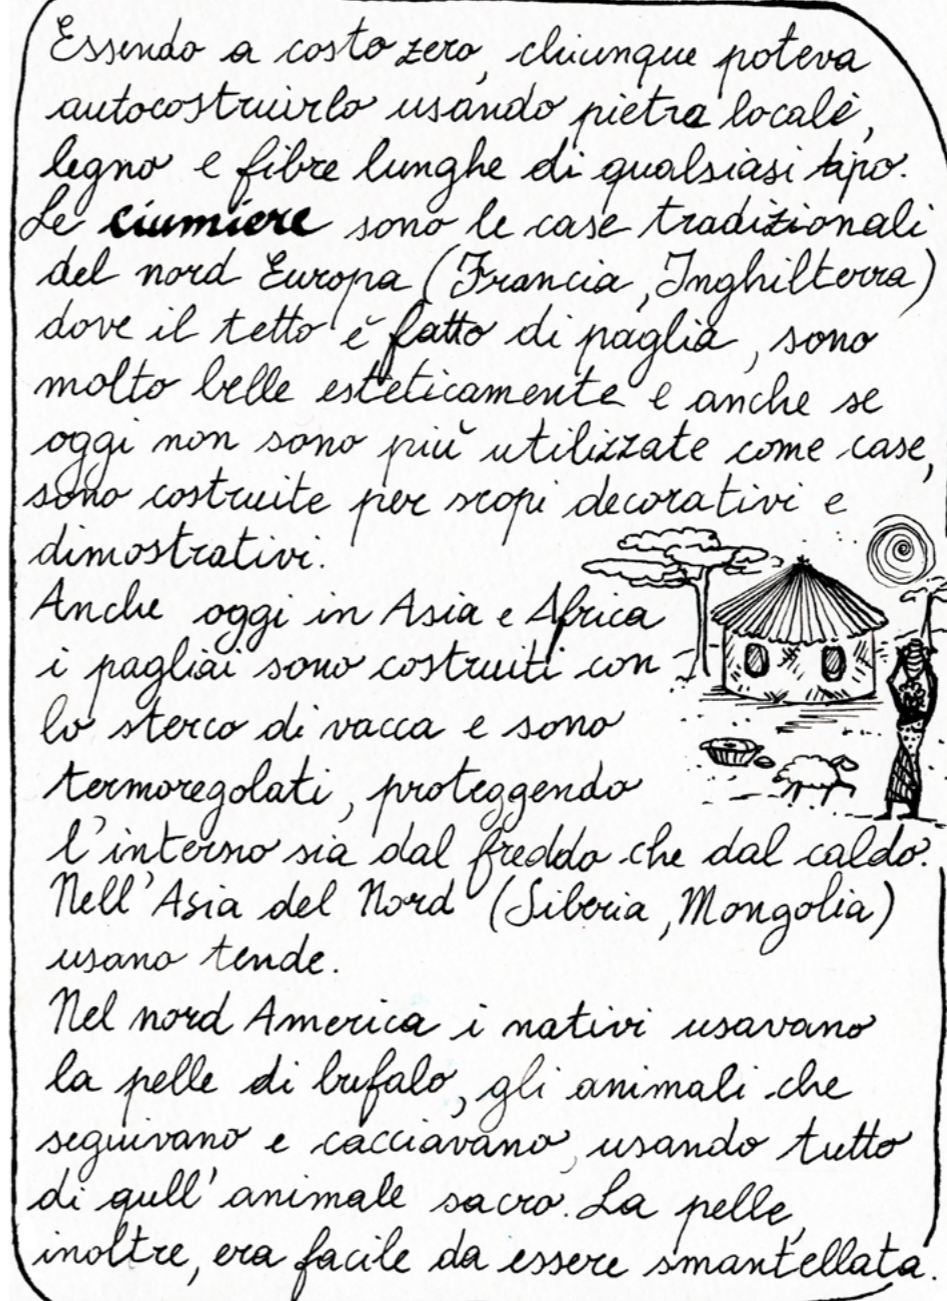 Essendo a costo zero, chiunque poteva
autocostruirlo usando pietra locale,
legno e fibre lunghe di qualsiasi tipo.
Le ciumiere sono le case tradizionali
del nord Europa (Francia, Inghilterra)
dove il tetto è fatto di paglia, sono
molto belle esteticamente e anche se
oggi non sono più utilizzate come case,
sono costruite per scopi decorativi e
dimostrativi.
Anche oggi in Asia e Africa
i pagliai sono costruiti con
lo sterco di vacca e sono
termoregolati, proteggendo
l'interno sia dal freddo che dal caldo.
Nell'Asia del Nord (Siberia, Mongolia)
usano tende.
Nel nord America i nativi usavano
la pelle di bufalo, gli animali che
seguivano e cacciavano, usando tutto
di qull' animale sacro. La pelle,
inoltre, era facile da essere smantellata.